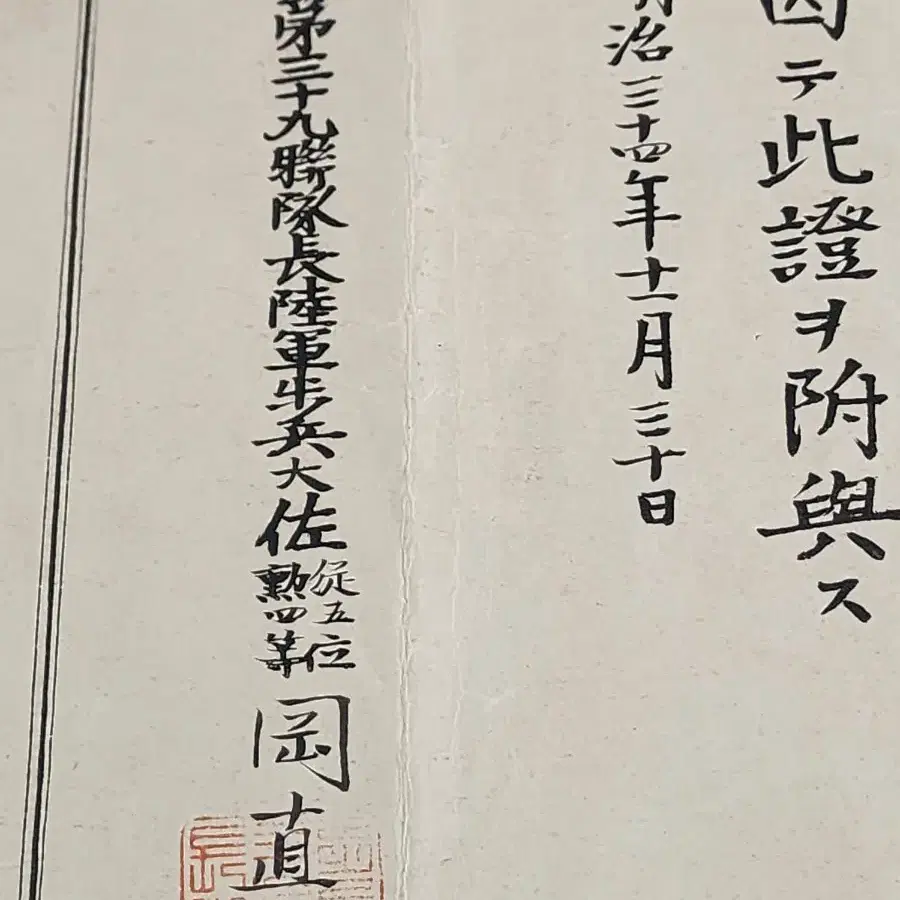 因テ此證ヲ附與ス
明治三十四年十一月三十日
第三十九聯隊長陸軍歩兵大佐
從五位
勲四等
岡直